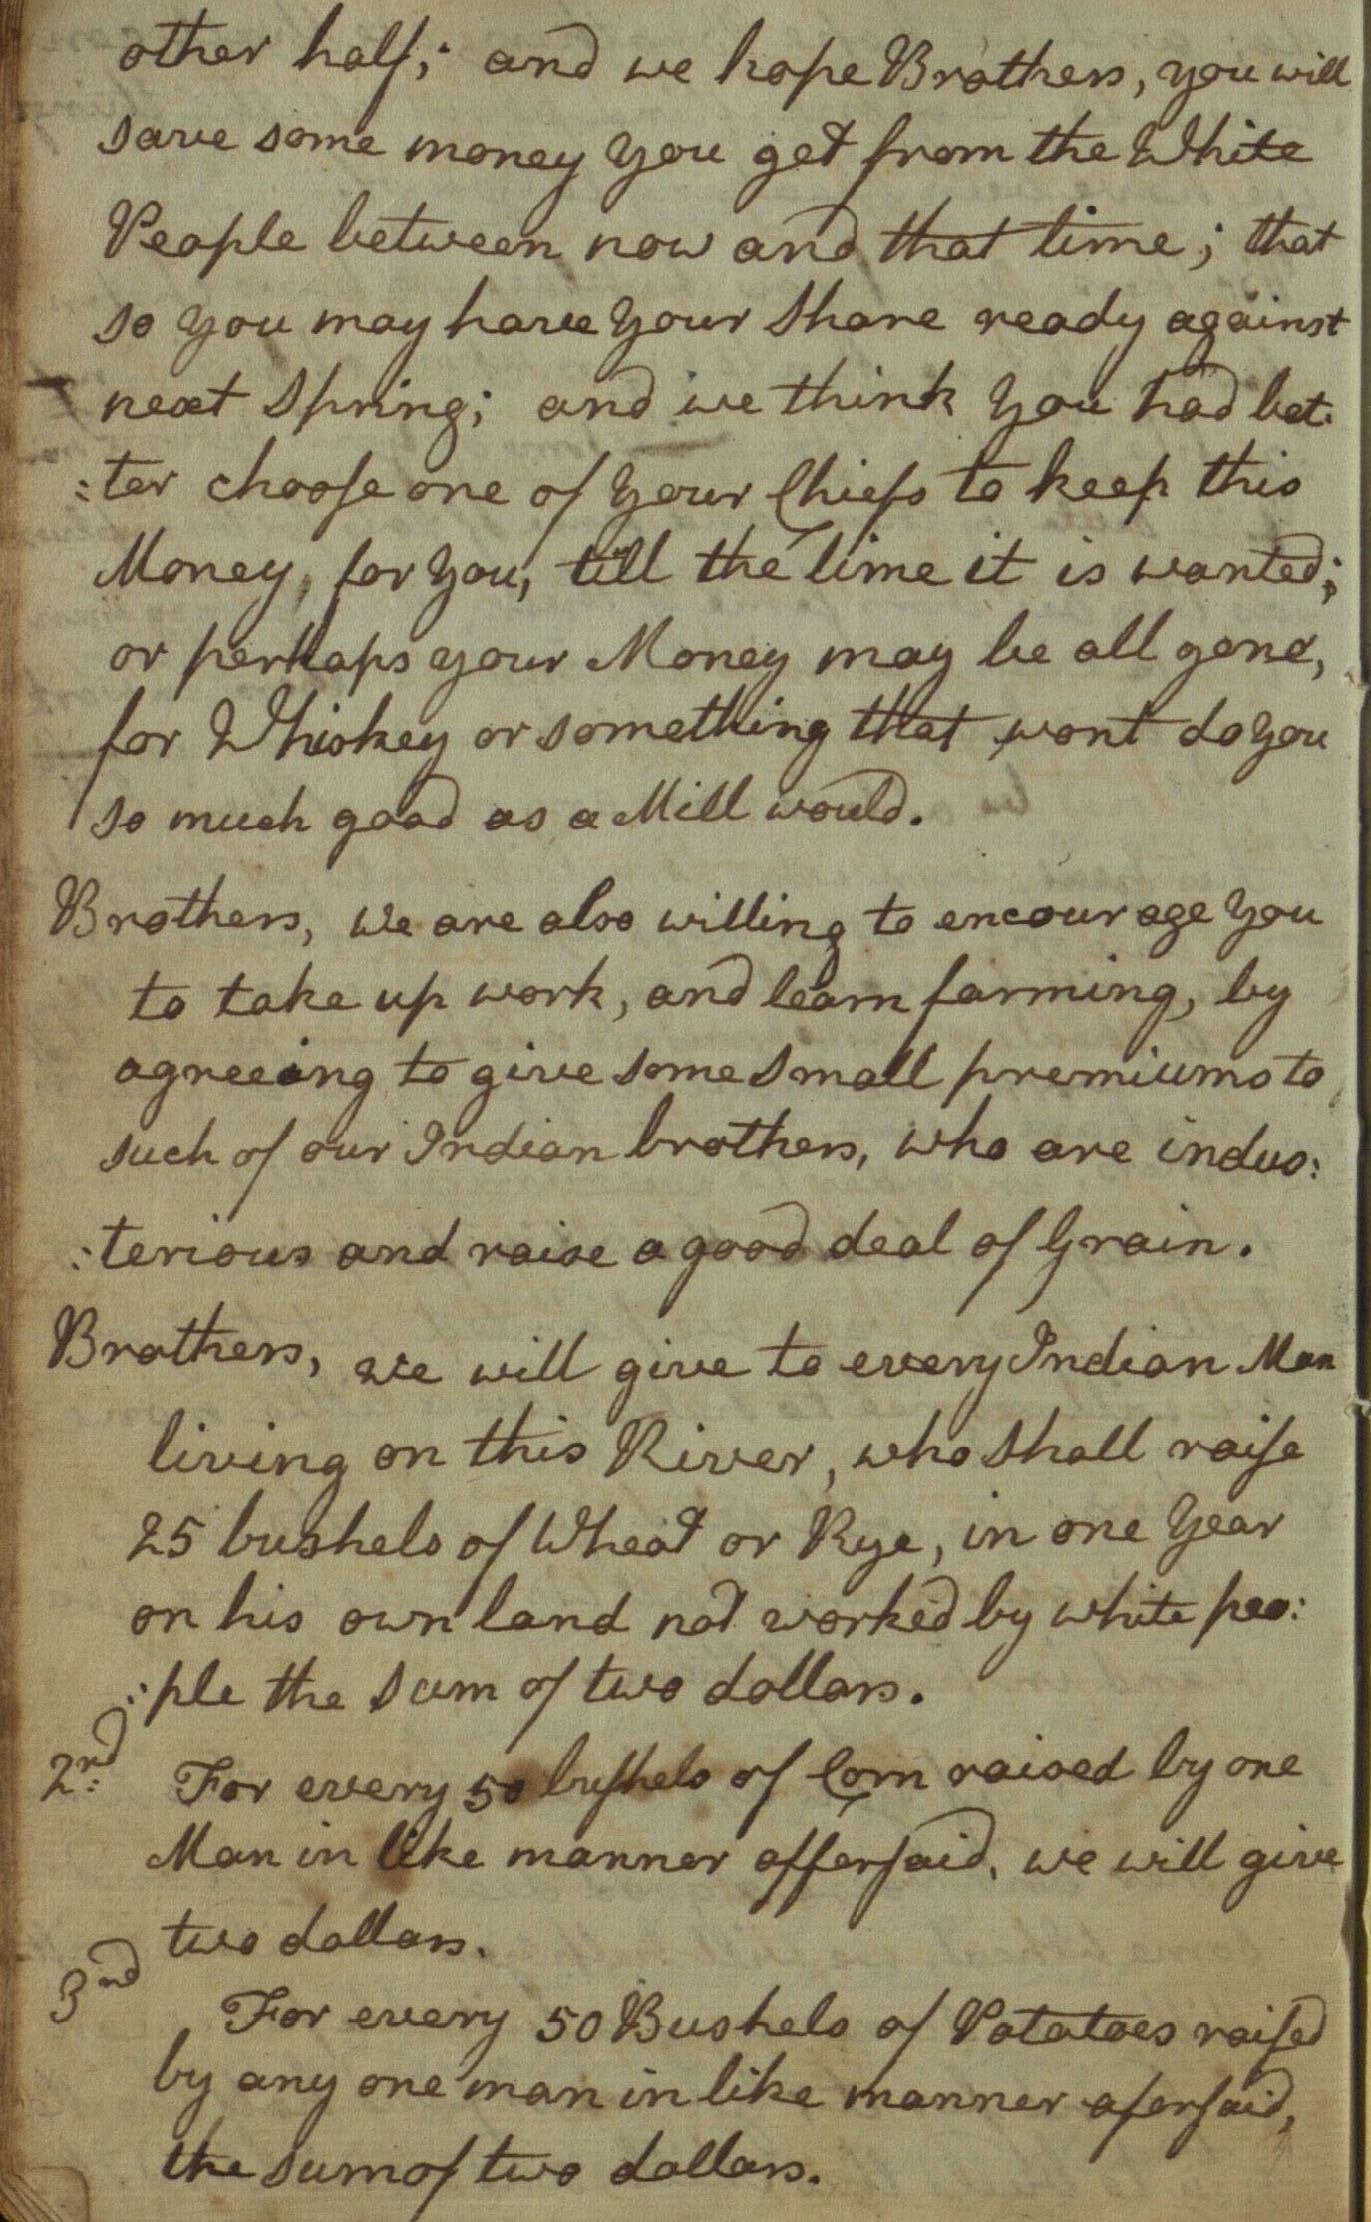 other half; and we hope Brothers, you will
save some money you get from the White
People between now and that time; that
so you may have your Share ready against
next Spring; and we think you had bet:
:ter choose one of your Chiefs to keep this
Money, for you, till the time it is wanted;
or perhaps your Money may be all gone,
for Whiskey or something that wont do you
so much good as a Mill would.
Brothers, we are also willing to encourage you
to take up work, and learn farming, by
agreeing to give some small premiums to
such of our Indian brothers, who are indus:
:terious and raise a good deal of Grain.
Brothers, we will give to every Indian Man
living on this River, who shall raise
25 bushels of Wheat or Rye, in one year
on his own land not worked by white peo:
:ple the Sum of two dollars.
2nd: For every 50 bushels of Corn raised by one
Man in like manner afforsaid, we will give
two dollars.
3nd For every 50 Bushels of Potatoes raised
by any one man in like manner aforsaid,
the sum of two dollars.